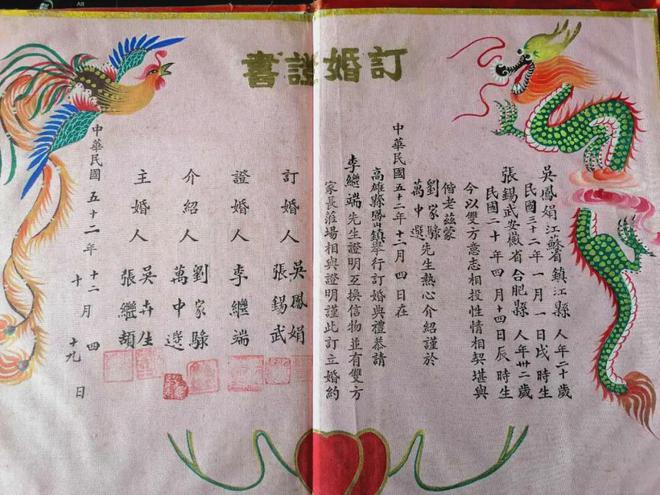 訂婚證書
吳鳳娟江蘇省鎮江縣人年二十歲
民國三十二年一月一日戌時生
張錫武安徽省合肥縣人年卅二歲
民國二十年四月十四日辰時生
今以雙方意志相投性情相契堪與
偕老茲蒙
劉家騄
萬中選先生熱心介紹謹於
中華民國五十二年十二月四日在
高雄縣岡山鎮舉行訂婚典禮恭請
李繼端先生證明互換信物並有雙方
家長蒞場相與證明謹此訂立婚約
訂婚人
吳鳳娟
張錫武
證婚人
李繼端
介紹人
劉家騄
萬中選
主婚人
吳卉生
張繼頡
中華民國五十二年十二月四日
十十九